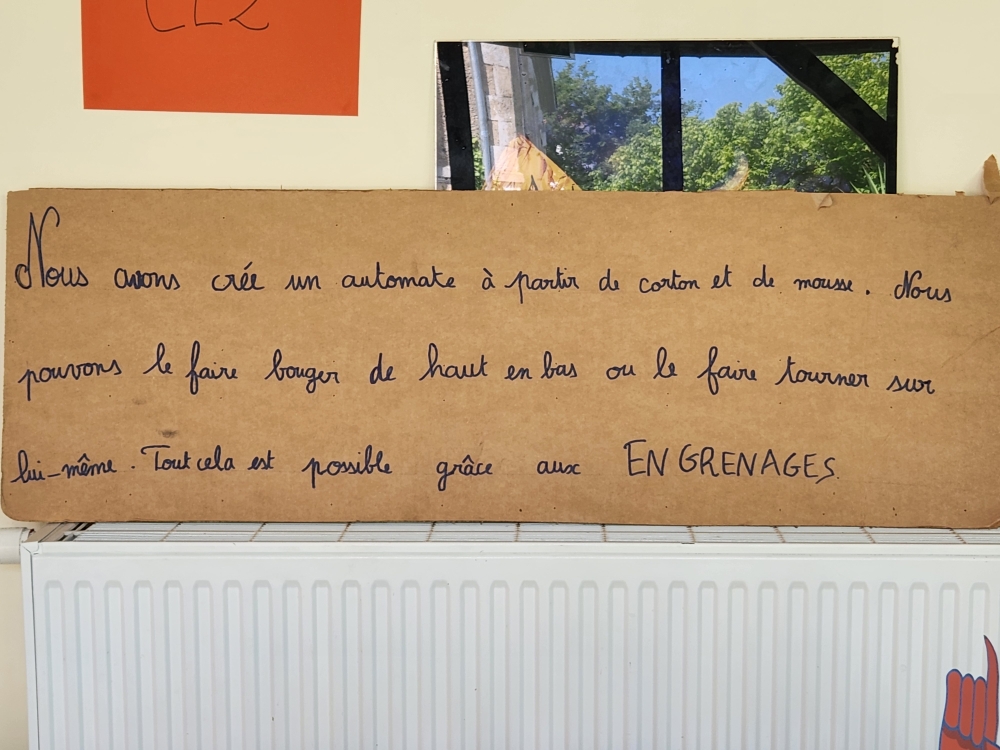 CE2
Nous avons crée un automate à partir de carton et de mousse. Nous
pouvons le faire bouger de haut en bas ou le faire tourner sur
lui-même. Tout cela est possible grâce aux ENGRENAGES